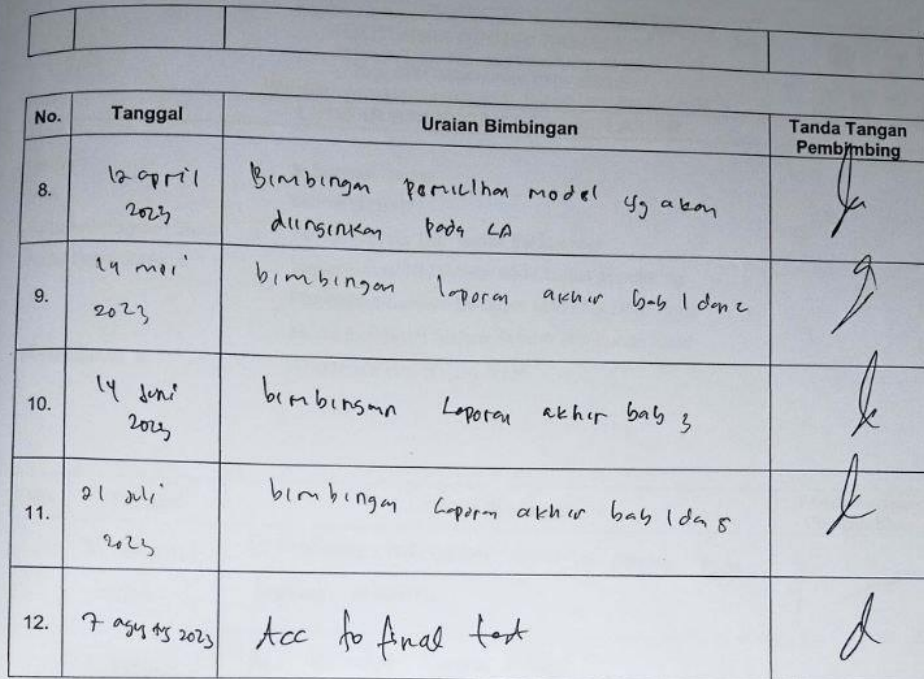 No. Tanggal Uraian Bimbingan Tanda Tangan
Pembimbing
8. 12 april Bimbingan pemilihan model yg akan
2023 diinginkan pada LA
9. 14 mei bimbingan laporan akhir bab 1 dan 2
2023
10. 14 Juni bimbingan Laporan akhir bab 3
2023
11. 21 Juli bimbingan Laporan akhir bab
2023
12. 7 agustus 2023 Acc to final test